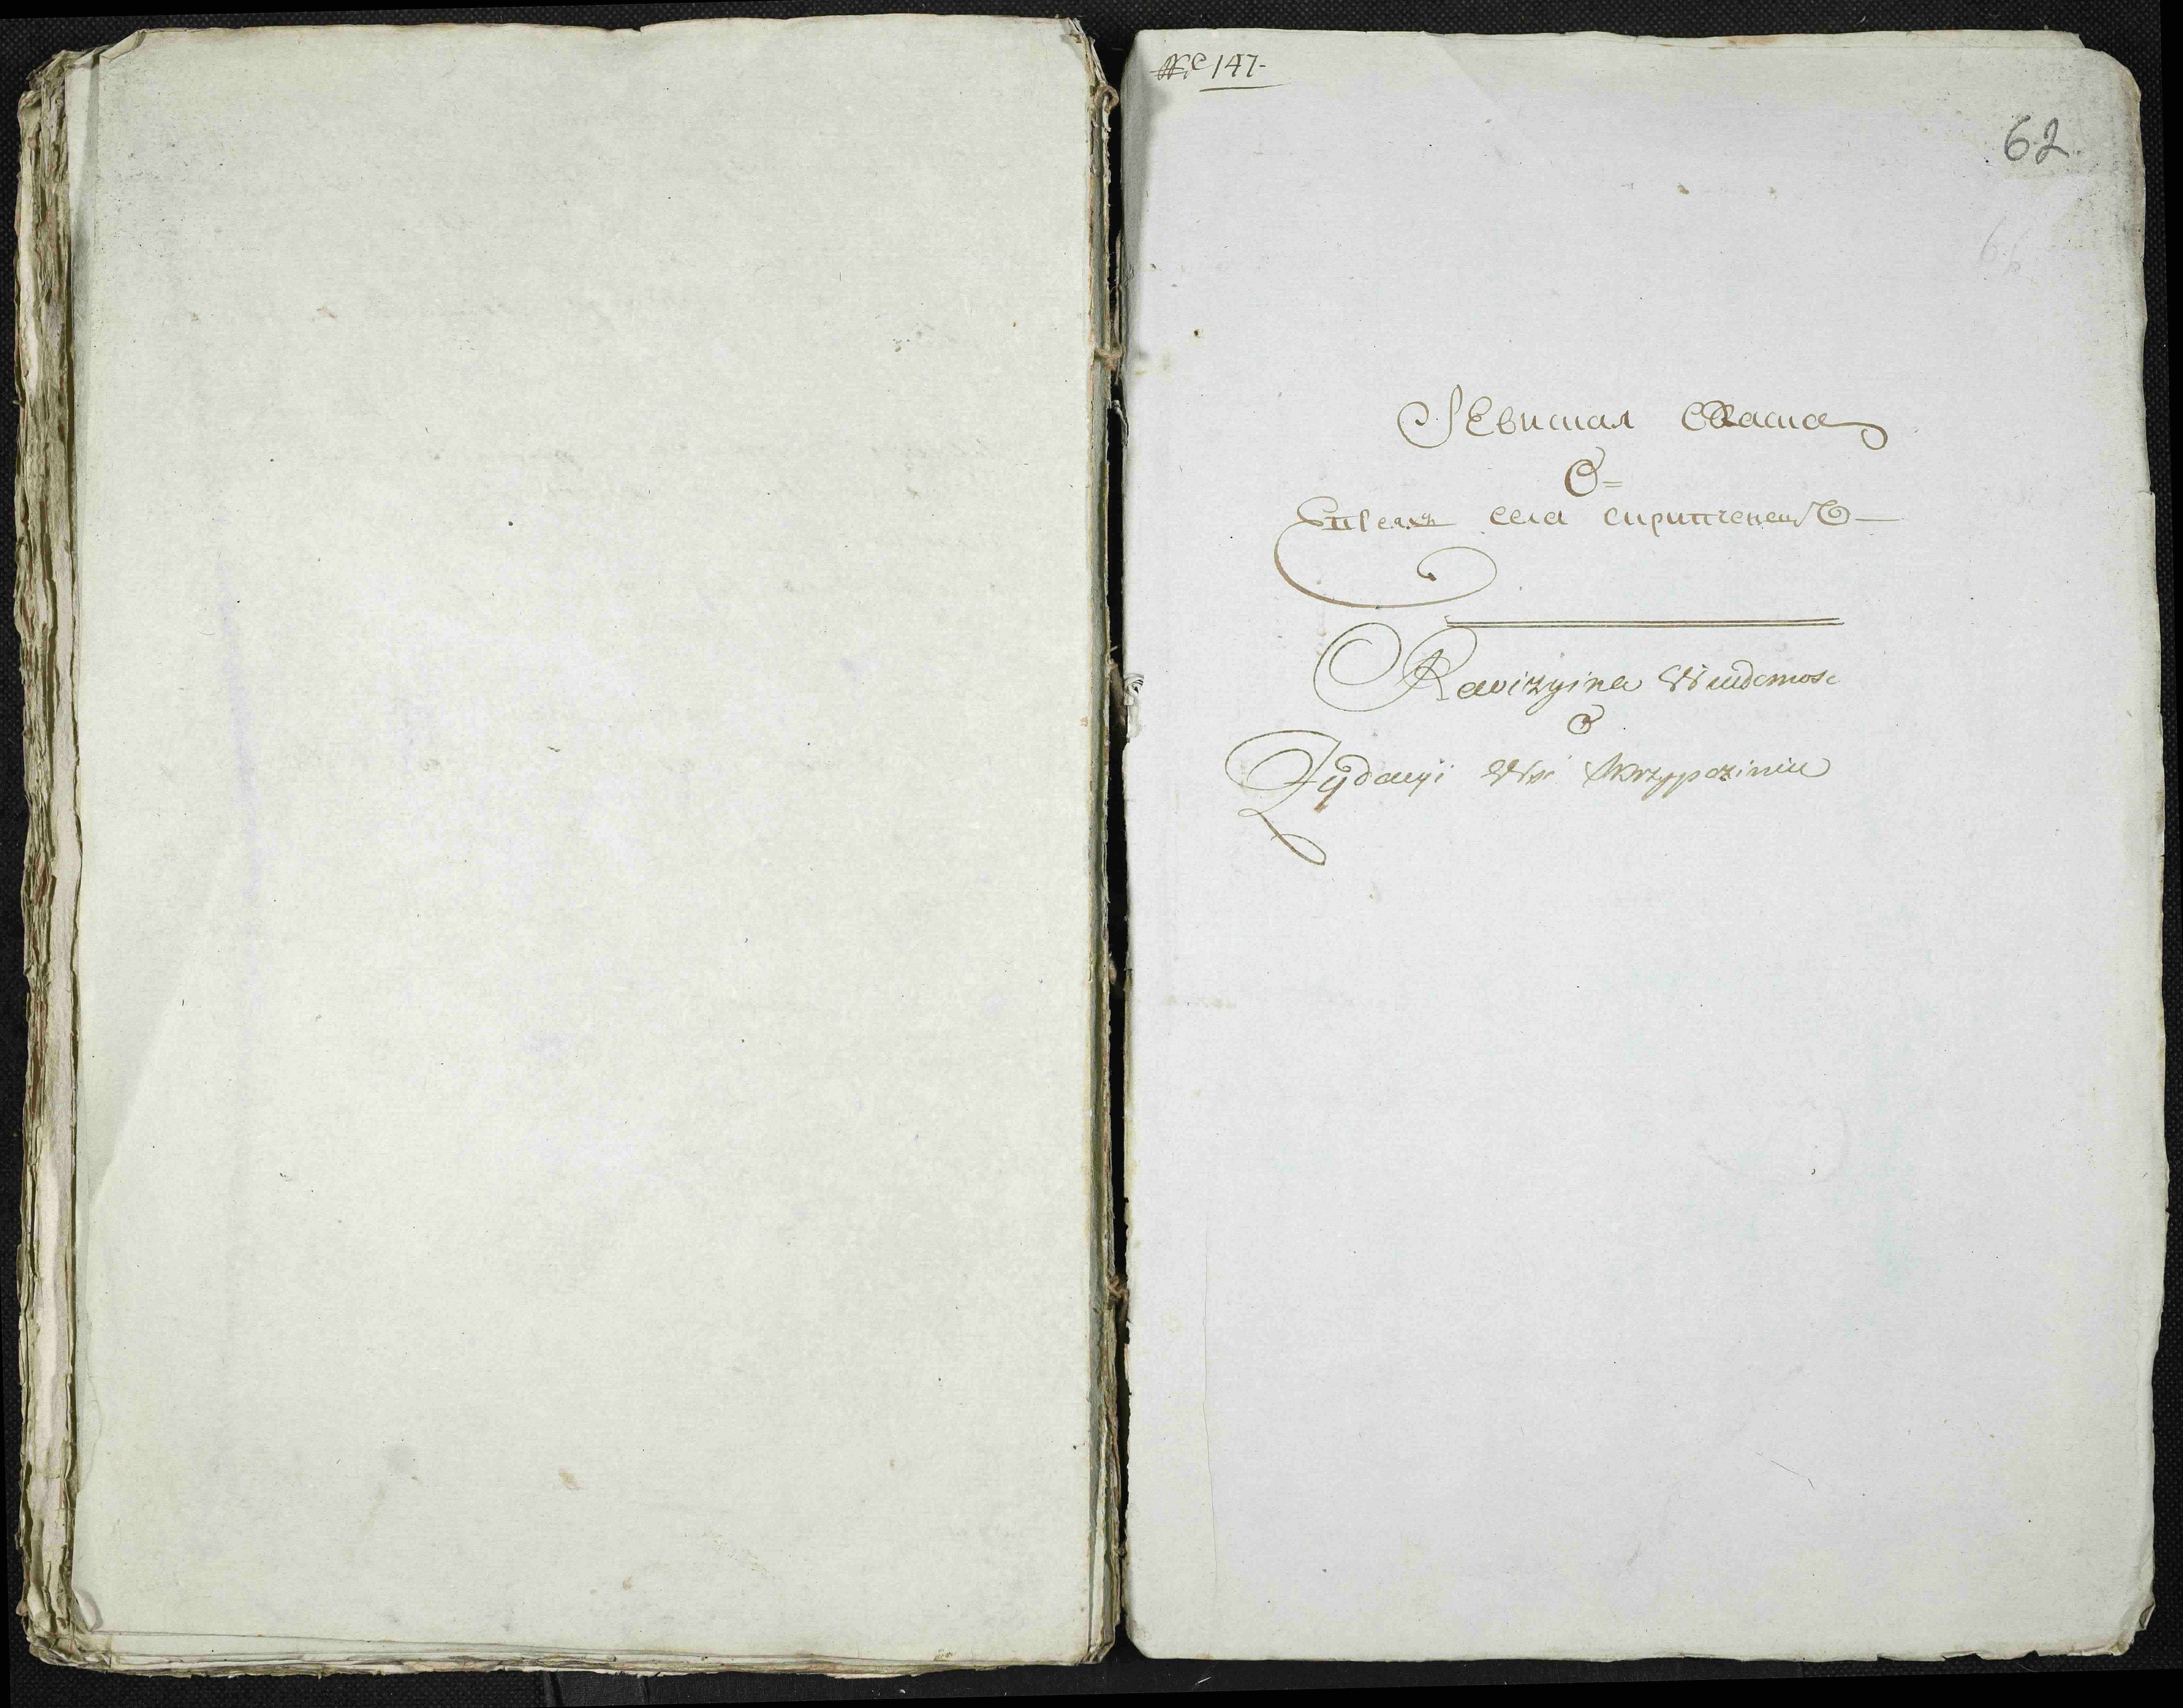 № 147.
62.
66
Ревизная Сказка
О
Евреях села скрипченец
Rewizyina Wiadomosc
O
Żydach Wsi Skrzypcziniec